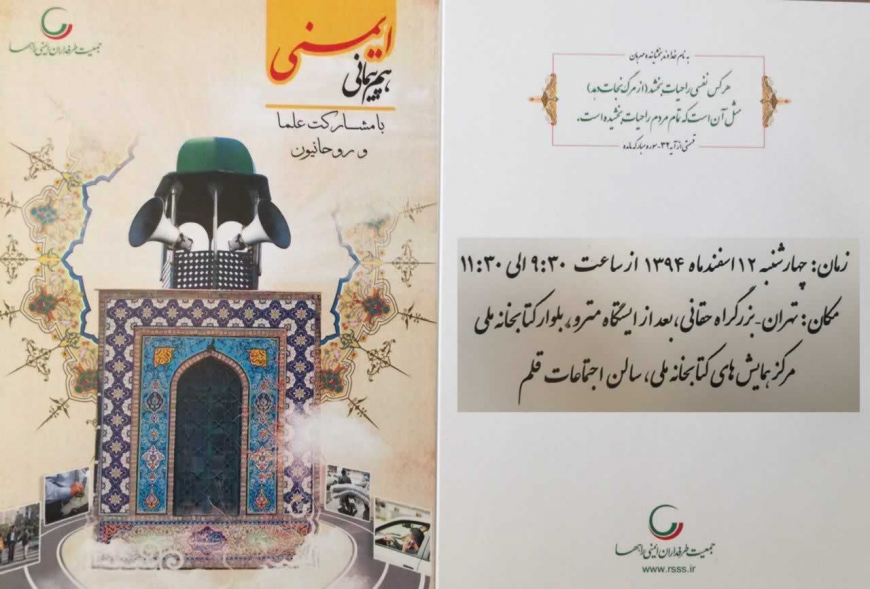 جمعیت طرفداران ایمنی راهها
ایمنی
هم پیمانی
با مشارکت علما
و روحانیون
به نام خداوند بخشاینده مهربان
هر کس نفسی را حیات بخشد (از مرگ نجات دهد)
مثل آن است که تمام مردم را حیات بخشیده است.
قسمتی از آیه ۳۲- سوره مبارکه مائده
زمان: چهارشنبه ۱۲ اسفندماه ۱۳۹۴ از ساعت ۹:۳۰ الی ۱۱:۳۰
مکان: تهران-بزرگراه حقانی، بعد از ایستگاه مترو، بلوار کتابخانه ملی
مرکز همایش های کتابخانه ملی، سالن اجتماعات قلم
جمعیت طرفداران ایمنی راهها
www.rsss.ir